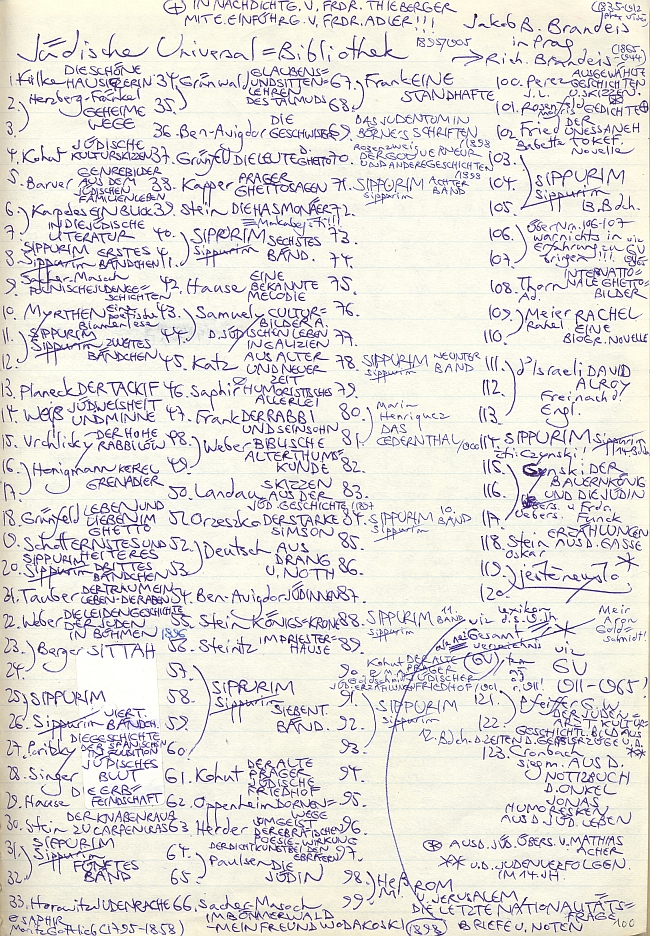 ⊕ IN NACHDICHTG. V. FRDR. THIEBERGER
MIT E. EINFÜHRG. V. FRDR. ADLER!!!
Jakob B. Brandeis
(1835-1912
in Prag
Jüdische Universal=Bibliothek
1895/1905
→ Rich. Brandeis
(1865-
1944)
1. Külke DIE SCHÖNE
HAUSIERERIN
2.) Herzberg-Fränkel
GEHEIME
3. WEGE
4. Kohut JÜDISCHE
KULTURSKIZZEN
5. Barber GENREBILDER
AUS DEM
JÜDISCHEN
FAMILIENLEBEN
6.) Karpeles EIN BLICK
7. IN DIE JÜDISCHE
LITERATUR
8. SIPPURIM ERSTES
Sippurim BÄNDCHEN
9. Sacher-Masoch
POLNISCHE JUDENGE=
SCHICHTEN
10. MYRTHEN eine
poetische
Blumenlese
11.) SIPPURIM
Sippurim ZWEITES
12. BÄNDCHEN
13. Planeck DER TACKIF
14. Weiß JÜD. WEISHEIT
UND MINNE
15. Vrchlický DER HOHE
RABBI LÖW
16.) Honigmann KEREL
17. GRENADIER
18. Grünfeld LEBEN UND
LIEBEN IM
GHETTO
19. Schott ERNSTES UND
HEITERES
20. SIPPURIM DRITTES
Sippurim BÄNDCHEN
21. Tauber DER TRAUM EIN
LEBEN - DIE RABEN
22. Weber DIE LEIDENGESCHICHTE
DER JUDEN
IN BÖHMEN 1896
23.) Berger SITTAH
24.
25.) SIPPURIM
26. Sippurim VIERT.
BÄNDCH.
27. Pribky DIE GESCHICHTE
DER SPANISCHEN
INQUISITION
28. Singer JÜDISCHES
BLUT
29. Hause DIE ERB=
FEINDSCHAFT
30. Stein DER KNABENRAUB
ZU CARPENTRAS
31.) SIPPURIM
Sippurim FÜNFTES
32. BAND
33. Horowitz JUDENRACHE
⊙ SAPHIR
Moritz Gottlieb (1795-1858)
34.) Grünwald GLAUBENS=
UND SITTEN=
35. LEHREN
DES TALMUDS
36. Ben-Avigdor DIE
GESCHWISTER
37. Grünfeld DIE LEUTE D.
GHETTO
38. Kapper PRAGER
GHETTOSAGEN
39. Stein DIE HASMONÄER
40.) SIPPURIM
41. Sippurim SECHSTES
BAND.
42. Hause EINE
BEKANNTE
MELODIE
43.) Samuely CULTUR=
BILDER A.
44. D. JÜDISCHEN LEBEN
IN GALIZIEN
45. Katz AUS ALTER
UND NEUER
ZEIT
46. Saphir HUMORISTISCHES
ALLERLEI
47. Frank DER RABBI
UND SEIN SOHN
48.) Weber BIBLISCHE
49. ALTERTHUMS=
KUNDE
50. Landau SKIZZEN
AUS DER
JÜD. GESCHICHTE 1897
51. Orzeszko DER STARKE
SIMSON
52.) Deutsch AUS
53. DRANG
U. NOTH
54. Ben-Avigdor JÜDINNEN
55. Stein KÖNIGS=KRONE
56. Steinitz IM PRIESTER=
HAUSE
57.) SIPPURIM
58. Sippurim
59. SIEBENT.
60. BAND.
61. Kohut DER ALTE
PRAGER
JÜDISCHE
FRIEDHOF
62. Oppenheim DORNEN=
WEGE
63. Herder VOM GEIST
DER EBRÄISCHEN
POESIE - WIRKUNG
DER DICHTKUNST BEI DEN
EBRÄERN
64.) Paulsen DIE
65. JÜDIN
66. Sacher-Masoch
IM BÖHMERWALD
-MEIN FREUND WODAKOSKI (1898)
67.) Frank EINE
68. STANDHAFTE
69. DAS JUDENTUM IN
BÖRNE'S SCHRIFTEN
70. DER GOUVERNEUR
UND ANDERE GESCHICHTEN
1898
71. SIPPURIM ACHTER
Sippurim BAND
72.
73.
74.
75.
76.
77.
78. SIPPURIM NEUNTER
Sippurim BAND
79.
80.) Maria
Henriquez
81. DAS
CEDERNTHAL
1900
82.
83.
84. SIPPURIM 10.
Sippurim BAND
85.
86.
87.
88. SIPPURIM 11.
Sippurim BAND
89.
90. Kohut DER ALTE
PRAGER
JÜDISCHER
FRIEDHOF 1901
91.) SIPPURIM
92. Sippurim
93.
94.
95.
96.
97.
98.) Heß ROM
99. M. U. JERUSALEM
DIE LETZTE NATIONALITÄTS=
FRAGE
BRIEFE U. NOTEN
100. Perez AUSGEWÄHLTE
J.L. GESCHICHTEN
U. SKIZZEN
101. Rosenfeld GEDICHTE ⊕
102. Fried DER
Babette UNESSANEH
TOKEF.
Novelle
103.
104.) SIPPURIM
Sippurim
105. 13. Bdch.
106.) Über Nrn. 106-107
war nichts in
Erfahrung zu
107. bringen!!!
viz
GV
108. Thorn INTERNATIO=
Ad. NALE GHETTO=
BILDER
109.) Meier RACHEL
Rahel EINE
110. BIOGR. NOVELLE
111.) d'Israeli DAVID
112. ALROY
Frei nach d.
113. Engl.
114. SIPPURIM Sippurim
14. Bdch.
Ficzynski!
115. Gynski DER
BAUERNKÖNIG
116. UND DIE JÜDIN
Übers. v. Frdr.
117. Funck
118. Stein ERZÄHLUNGEN
Oskar AUS D. GASSE
119.) ještě neust.
120.
Lexikon
viz d.s.J.th
Gesamt
verzeichnis
(GV)
viz
GV
1911-1965!
Meir
Aron
Gold=
schmidt!
121.) Pfeiffer G.W.
DER JUDEN=
122. ARZT KULTUR=
GESCHICHTL. BILD AUS
D. ZEITEN D. GEISSLERZÜGE U. D. **
12. Bdch.
123. Cronbach
Siegm. AUS D.
NOTIZBUCH
D. ONKEL
JONAS
HUMORESKEN
AUS D. JÜD. LEBEN
⊕ AUS D. JÜD. ÜBERS. V. MATHIAS
ACHER
** U.D. JUDENVERFOLGEN
IM 14. JH.
100